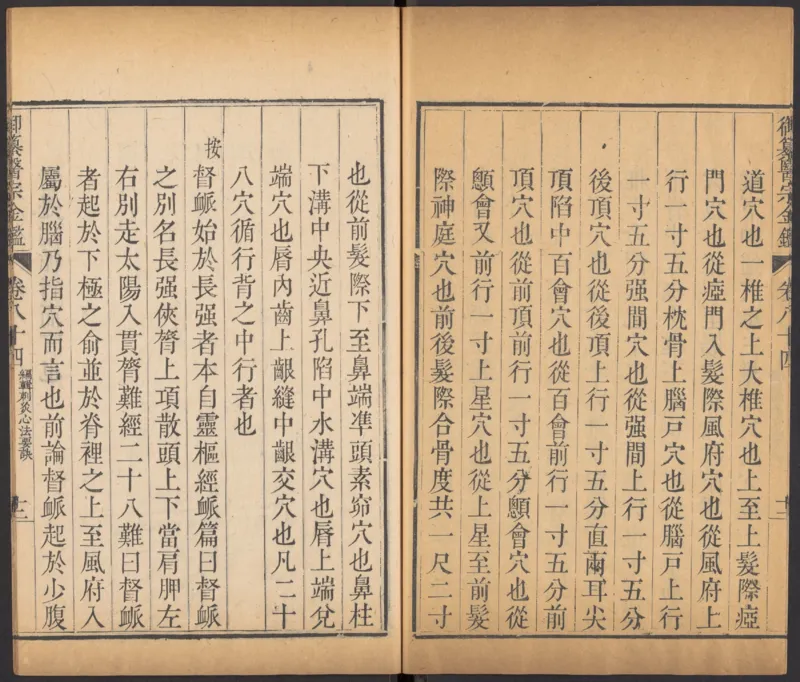 道穴也一椎之上大椎穴也上至上髮際瘂
門穴也從瘂門入髮際風府穴也從風府上
行一寸五分枕骨上腦戸穴也從腦戸上行
一寸五分强間穴也從强間上行一寸五分
後頂穴也從後頂上行一寸五分直兩耳尖
頂陷中百會穴也從百會前行一寸五分前
頂穴也從前頂前行一寸五分顖會穴也從
顖會又前行一寸上星穴也從上星至前髮
際神庭穴也前後髮際合骨度共一尺二寸
御纂醫宗金鑑
卷八十四
也從前髮際下至鼻端凖頭素窌穴也鼻柱
下溝中央近鼻孔陷中水溝穴也唇上端兌
端穴也唇內齒上齦縫中齦交穴也凡二十
八穴循行背之中行者也
按督䘑始於長强者本自靈樞經䘑篇曰督䘑
之别名長强俠膂上項散頭上下當肩胛左
右别走太陽入貫膂難經二十八難曰督䘑
者起於下極之俞並於脊裡之上至風府入
屬於腦乃指穴而言也前論督䘑起於少腹
御纂醫宗金鑑
卷八十四
編輯刺灸心法要訣
十二